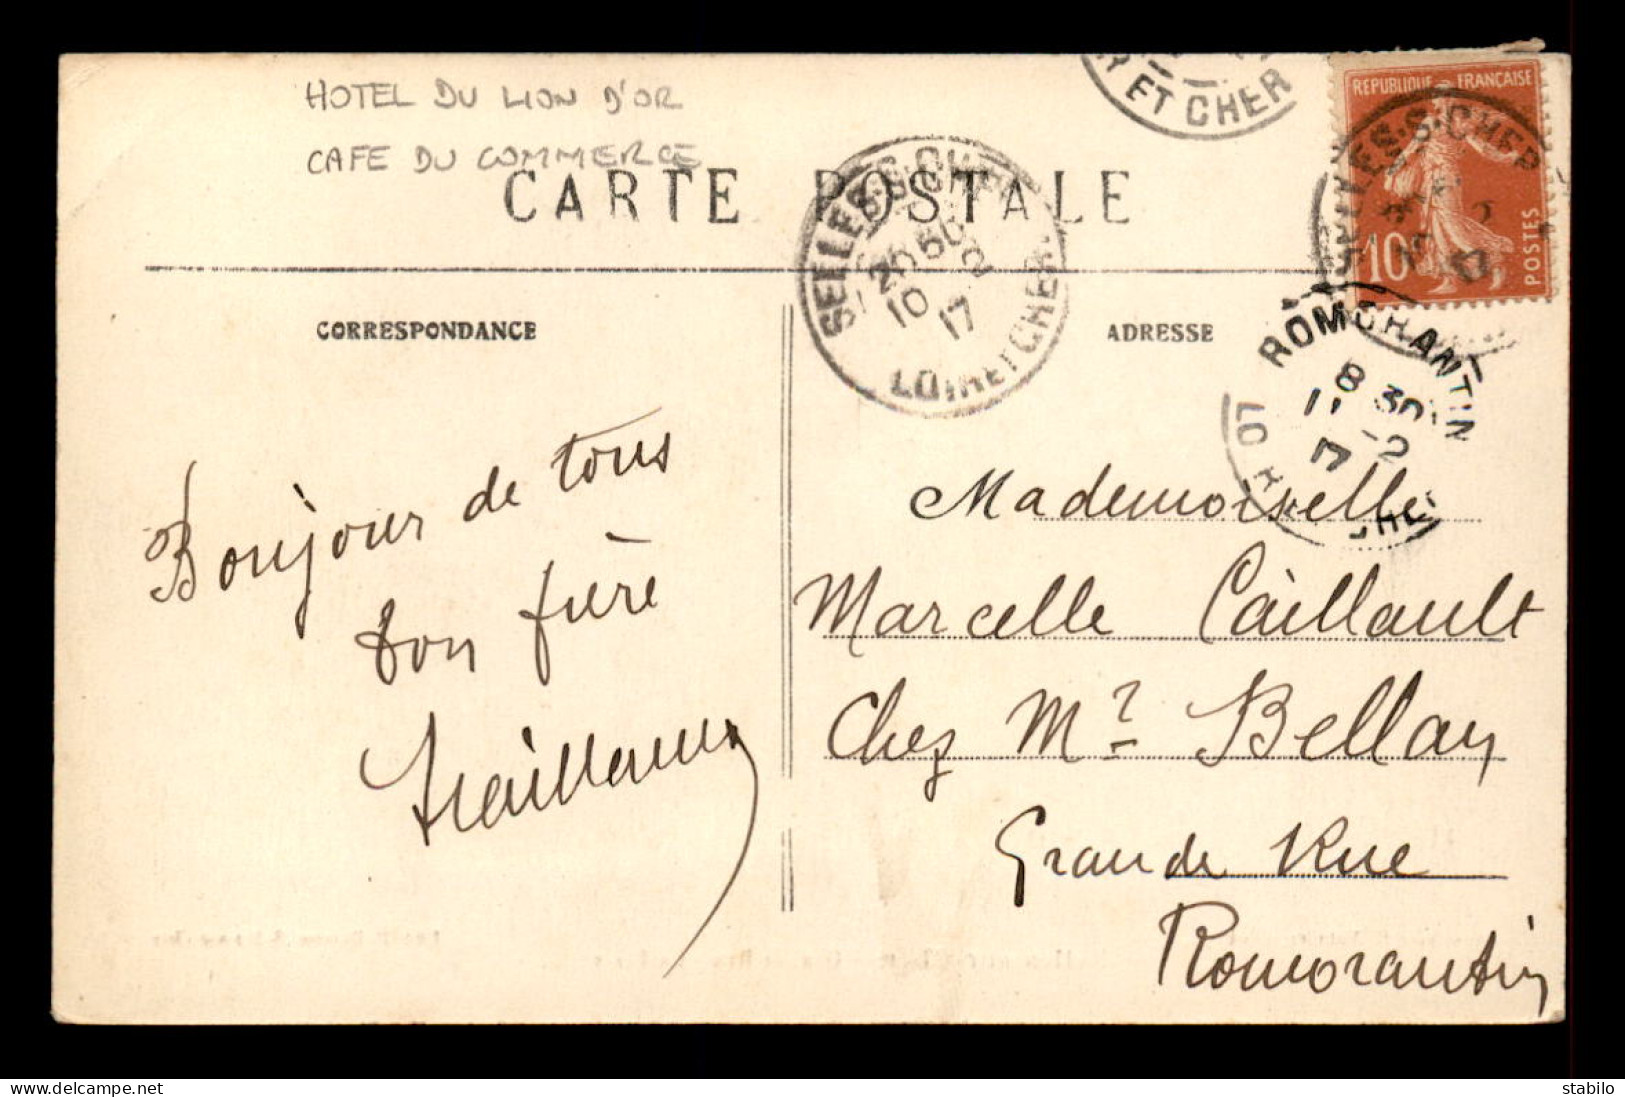 HOTEL DU LION D'OR
CAFE DU COMMERCE
CARTE POSTALE
CORRESPONDANCE
ADRESSE
R ET CHER
SELLES-S-CHER
20 50
10 2
17
LOIR ET CHER
REPUBLIQUE FRANÇAISE
10
POSTES
SELLES-S-CHER
ROMORANTIN
8 30
11 -2
17
Bonjour de tous
ton frère
Mademoiselle
Marcelle Caillault
Chez Mr Bellay
Grande Rue
Romorantin
stabilo